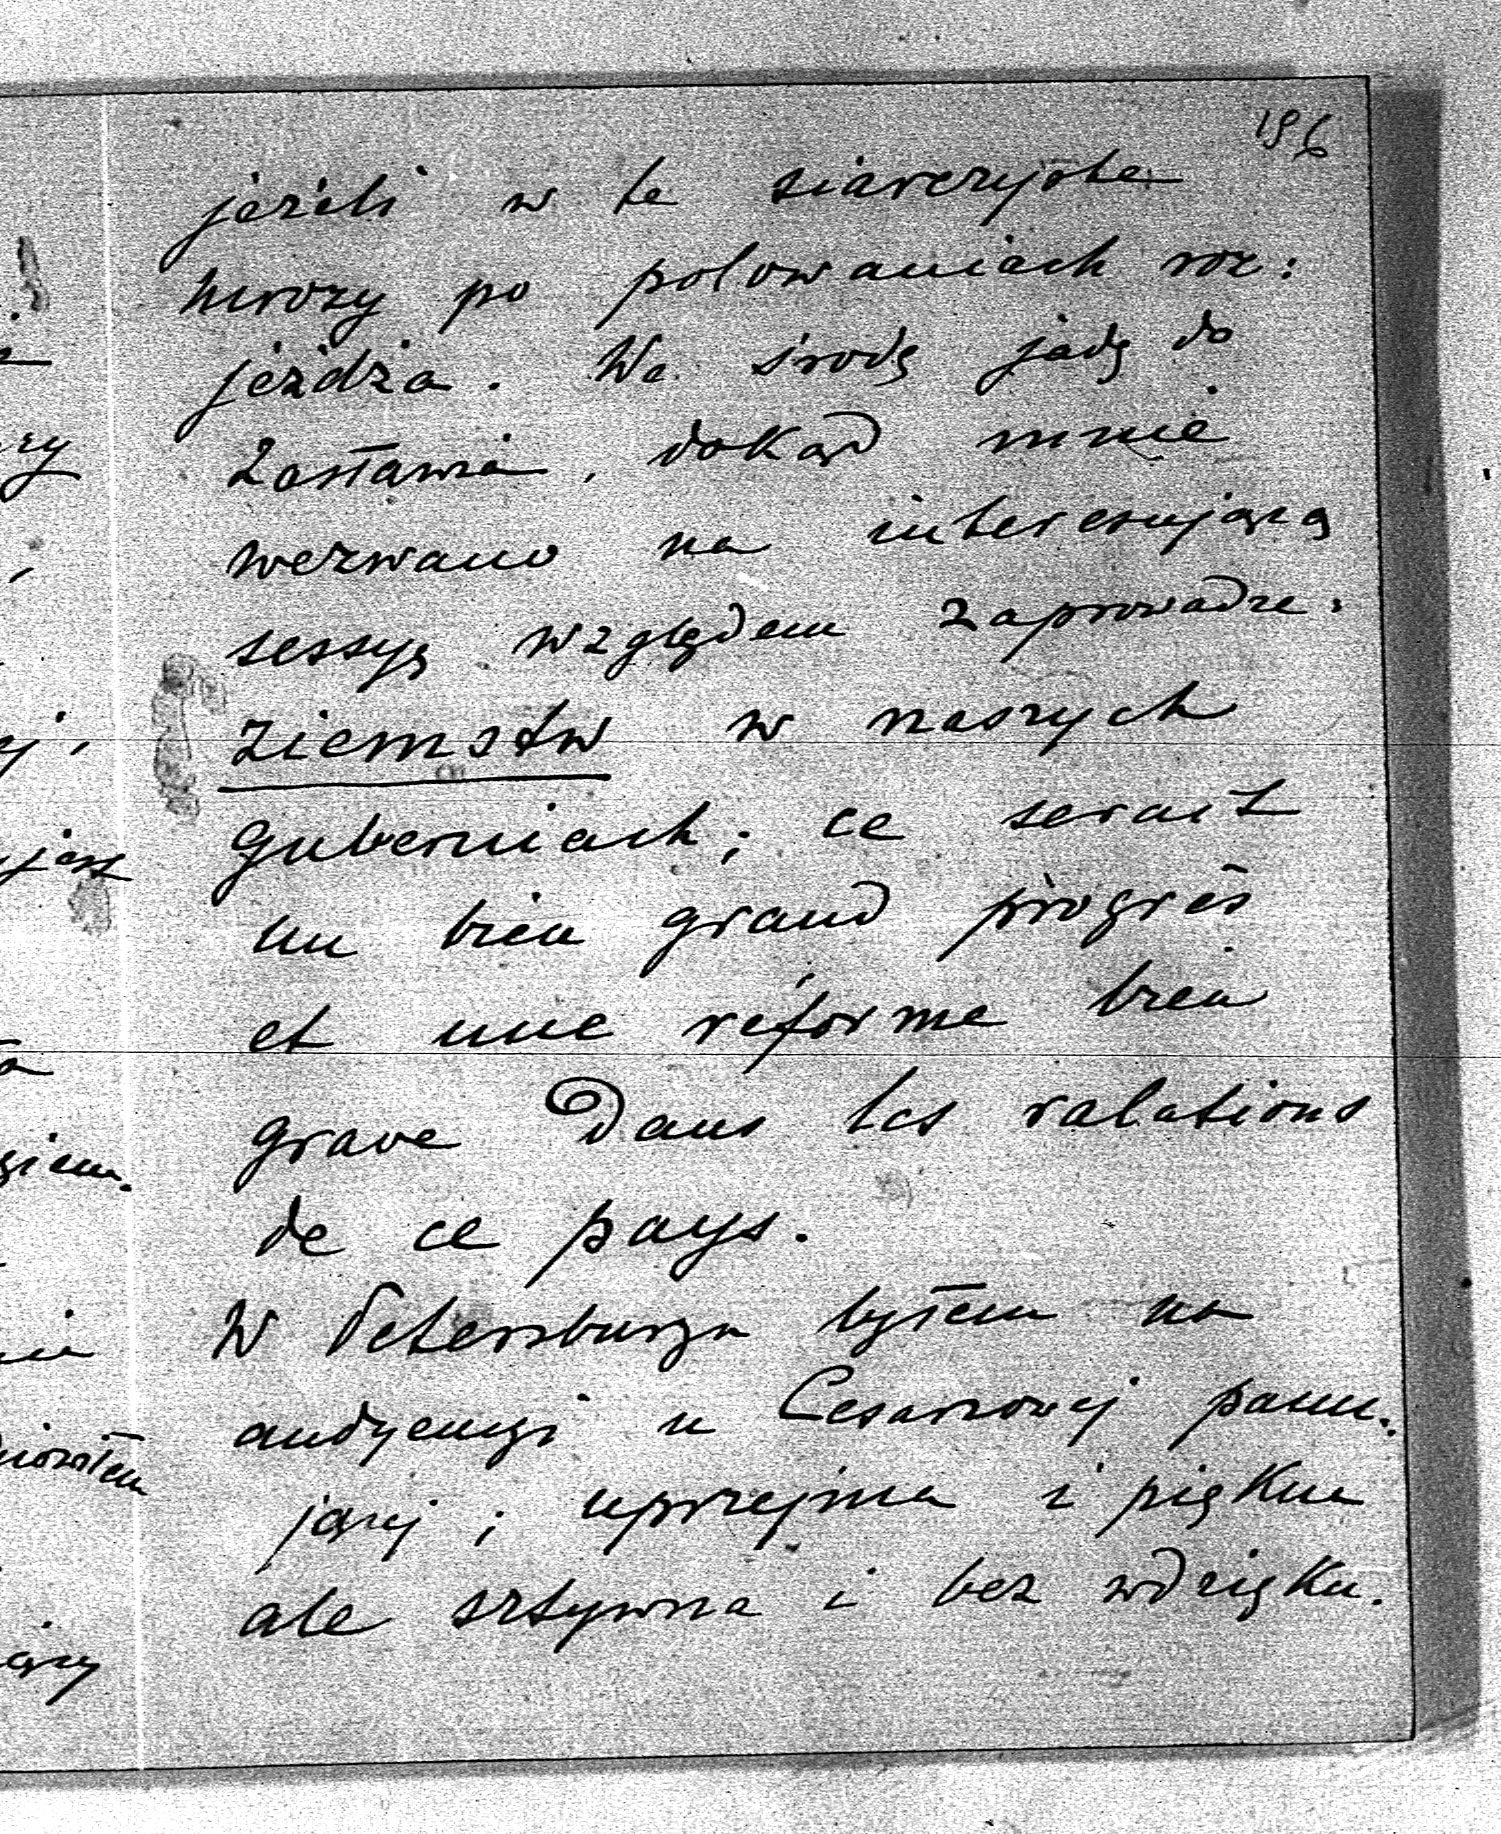 196
jeżeli w te siarczyste
mrozy po polowaniach roz:
jeżdża. We środę jadę do
Zasławia, dokąd mnie
wezwano na interesującą
sessyę względem zaprowadze:
ziemstw w naszych
guberniach; ce serait
un bien grand progrès
et une réforme bien
grave dans les relations
de ce pays.
W Petersburgu byłem na
audyencyi u Cesarzowej panu:
jącej; uprzejma i piękna
ale sztywna i bez wdzięku.